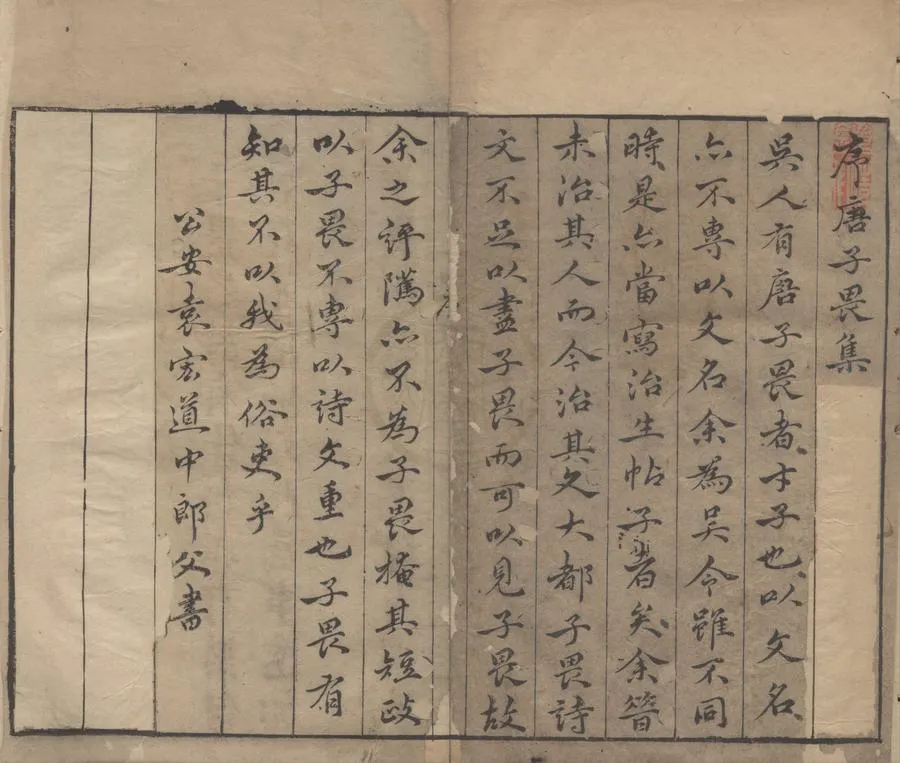 序唐子畏集
吳人有唐子畏者才子也以文名
亦不專以文名余為吳令雖不同
時是亦當寫治生帖子者矣余昔
未治其人而今治其文大都子畏詩
文不足以盡子畏而可以見子畏故
余之評隲亦不為子畏掩其短政
以子畏不專以詩文重也子畏有
知其不以我為俗吏乎
公安袁宏道中郎父書